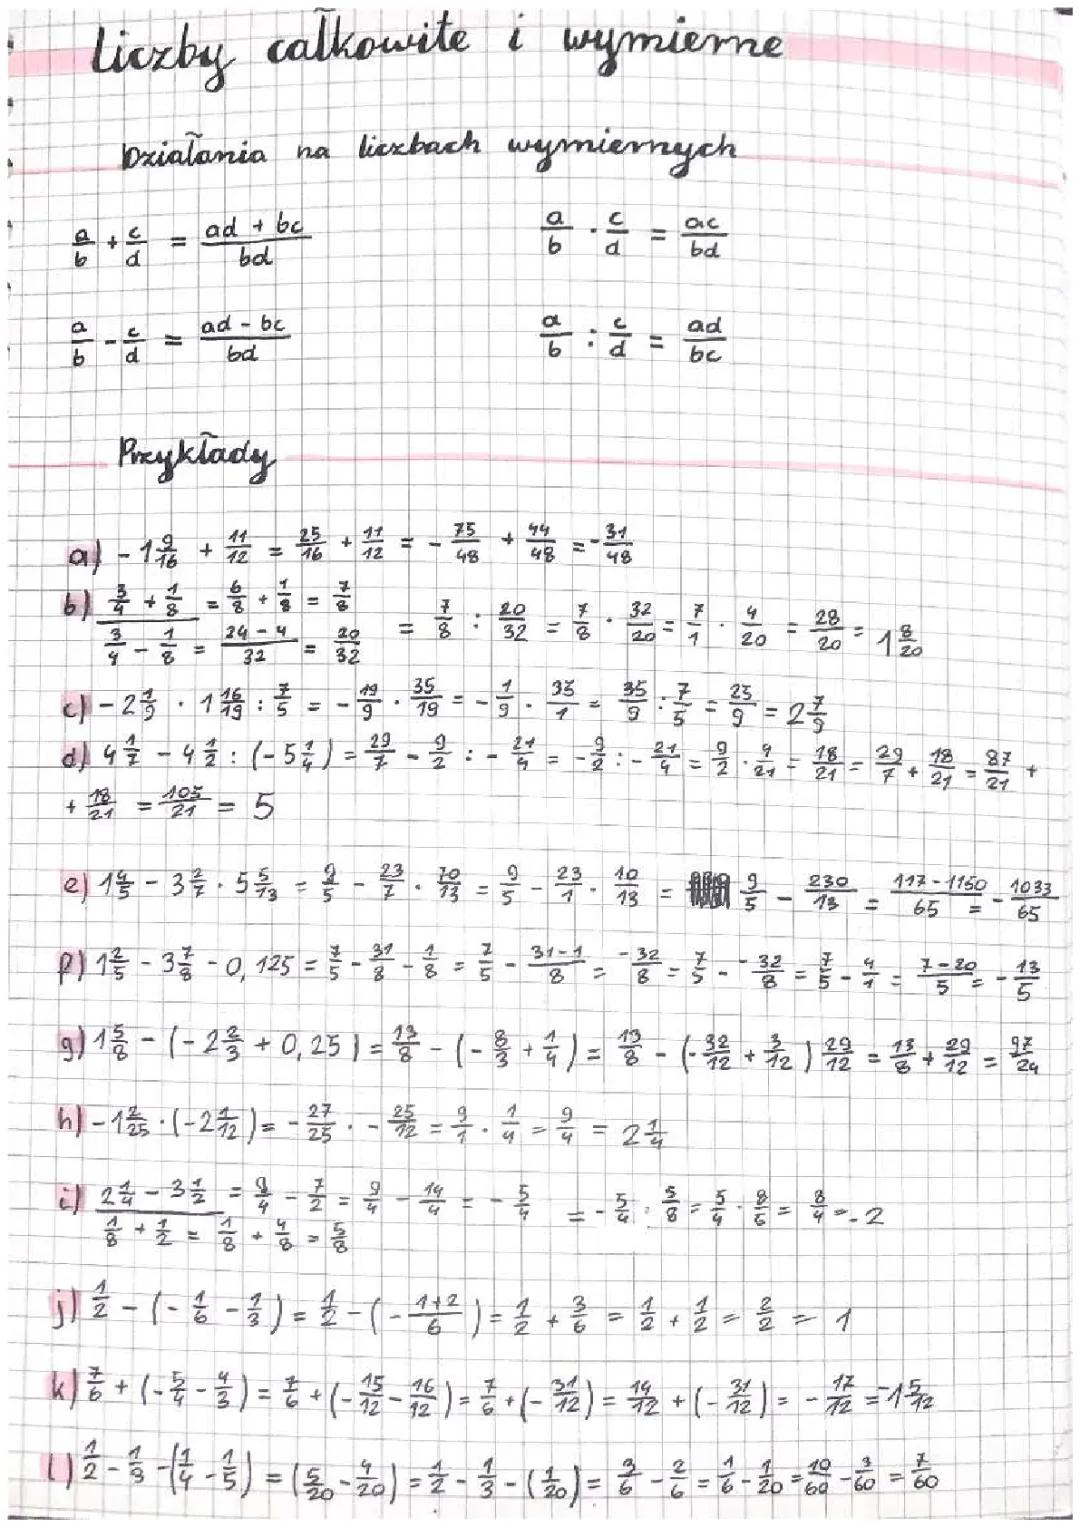 Liczby całkowite i wymierne
Działania na liczbach wymiernych
a/b + c/d = (ad + bc)/bd
a/b · c/d = ac/bd
a/b - c/d = (ad - bc)/bd
a/b : c/d = ad/bc
Przykłady
a) -1 9/16 + 11/12 = 25/16 + 11/12 = - 75/48 + 44/48 = - 31/48
b) 3/4 + 1/8 = 6/8 + 1/8 = 7/8
3/4 - 1/8 = (24 - 4)/32 = 20/32
= 7/8 : 20/32 = 7/8 · 32/20 = 7/1 · 4/20 = 28/20 = 1 8/20
c) -2 1/9 · 1 16/19 : 7/5 = - 19/9 · 35/19 = - 1/9 · 35/1 = 35/9 : 7/5 = 25/9 = 2 7/9
d) 4 1/7 - 4 1/2 : (-5 1/4) = 29/7 - 9/2 : - 21/4 = - 9/2 : - 21/4 = 9/2 · 4/21 = 18/21 = 29/7 + 18/21 = 87/21 +
+ 18/21 = 105/21 = 5
e) 1 4/5 - 3 2/7 · 5 5/13 = 9/5 - 23/7 · 70/13 = 9/5 - 23/1 · 10/13 = 9/5 - 230/13 = (117 - 1150)/65 = - 1033/65
f) 1 2/5 - 3 7/8 - 0,125 = 7/5 - 31/8 - 1/8 = 7/5 - (31-1)/8 = -32/8 = 7/5 - -32/8 = 7/5 - 4/1 = (7-20)/5 = - 13/5
g) 1 5/8 - (-2 2/3 + 0,25) = 13/8 - (- 8/3 + 1/4) = 13/8 - (- 32/12 + 3/12) 29/12 = 13/8 + 29/12 = 97/24
h) -1 2/25 · (-2 1/12) = - 27/25 · - 25/12 = 9/1 · 1/4 = 9/4 = 2 1/4
i) 2 1/4 - 3 1/2 = 9/4 - 7/2 = 9/4 - 14/4 = - 5/4
1/8 + 1/2 = 1/8 + 4/8 = 5/8
= - 5/4 : 5/8 = 5/4 · 8/5 = 8/4 = -2
j) 1/2 - (- 1/6 - 1/3) = 1/2 - (- (1+2)/6) = 1/2 + 3/6 = 1/2 + 1/2 = 2/2 = 1
k) 7/6 + (- 5/4 - 4/3) = 7/6 + (- 15/12 - 16/12) = 7/6 + (- 31/12) = 14/12 + (- 31/12) = - 17/12 = -1 5/12
l) 1/2 - 1/3 - (1/4 - 1/5) = (5/20 - 4/20) = 1/2 - 1/3 - (1/20) = 3/6 - 2/6 = 1/6 - 1/20 = 10/60 - 3/60 = 7/60